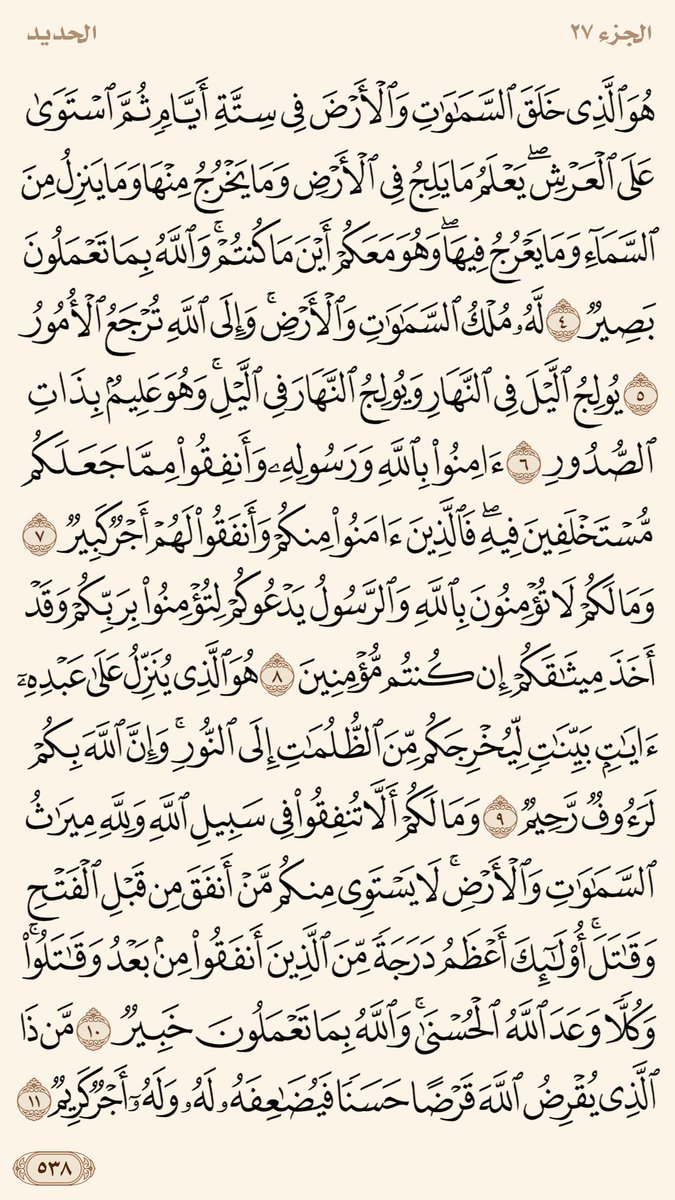 الجزء ٢٧
الحديد
هُوَ ٱلَّذِى خَلَقَ ٱلسَّمَـٰوَٰتِ وَٱلْأَرْضَ فِى سِتَّةِ أَيَّامٍ ثُمَّ ٱسْتَوَىٰ
عَلَى ٱلْعَرْشِ ۖ يَعْلَمُ مَا يَلِجُ فِى ٱلْأَرْضِ وَمَا يَخْرُجُ مِنْهَا وَمَا يَنزِلُ مِنَ
ٱلسَّمَآءِ وَمَا يَعْرُجُ فِيهَا ۖ وَهُوَ مَعَكُمْ أَيْنَ مَا كُنتُمْ ۚ وَٱللَّهُ بِمَا تَعْمَلُونَ
بَصِيرٌ ٤ لَّهُۥ مُلْكُ ٱلسَّمَـٰوَٰتِ وَٱلْأَرْضِ ۚ وَإِلَى ٱللَّهِ تُرْجَعُ ٱلْأُمُورُ
٥ يُولِجُ ٱلَّيْلَ فِى ٱلنَّهَارِ وَيُولِجُ ٱلنَّهَارَ فِى ٱلَّيْلِ ۚ وَهُوَ عَلِيمٌۢ بِذَاتِ
ٱلصُّدُورِ ٦ ءَامِنُوا۟ بِٱللَّهِ وَرَسُولِهِۦ وَأَنفِقُوا۟ مِمَّا جَعَلَكُم
مُّسْتَخْلَفِينَ فِيهِ ۖ فَٱلَّذِينَ ءَامَنُوا۟ مِنكُمْ وَأَنفَقُوا۟ لَهُمْ أَجْرٌ كَبِيرٌ ٧
وَمَا لَكُمْ لَا تُؤْمِنُونَ بِٱللَّهِ وَٱلرَّسُولُ يَدْعُوكُمْ لِتُؤْمِنُوا۟ بِرَبِّكُمْ وَقَدْ
أَخَذَ مِيثَـٰقَكُمْ إِن كُنتُم مُّؤْمِنِينَ ٨ هُوَ ٱلَّذِى يُنَزِّلُ عَلَىٰ عَبْدِهِۦٓ
ءَايَـٰتٍۭ بَيِّنَـٰتٍ لِّيُخْرِجَكُم مِّنَ ٱلظُّلُمَـٰتِ إِلَى ٱلنُّورِ ۚ وَإِنَّ ٱللَّهَ بِكُمْ
لَرَءُوفٌ رَّحِيمٌ ٩ وَمَا لَكُمْ أَلَّا تُنفِقُوا۟ فِى سَبِيلِ ٱللَّهِ وَلِلَّهِ مِيرَٰثُ
ٱلسَّمَـٰوَٰتِ وَٱلْأَرْضِ ۚ لَا يَسْتَوِى مِنكُم مَّنْ أَنفَقَ مِن قَبْلِ ٱلْفَتْحِ
وَقَـٰتَلَ ۚ أُو۟لَـٰٓئِكَ أَعْظَمُ دَرَجَةً مِّنَ ٱلَّذِينَ أَنفَقُوا۟ مِنۢ بَعْدُ وَقَـٰتَلُوا۟ ۚ
وَكُلًّا وَعَدَ ٱللَّهُ ٱلْحُسْنَىٰ ۚ وَٱللَّهُ بِمَا تَعْمَلُونَ خَبِيرٌ ١٠ مَّن ذَا
ٱلَّذِى يُقْرِضُ ٱللَّهَ قَرْضًا حَسَنًا فَيُضَـٰعِفَهُۥ لَهُۥ وَلَهُۥٓ أَجْرٌ كَرِيمٌ ١١
٥٣٨